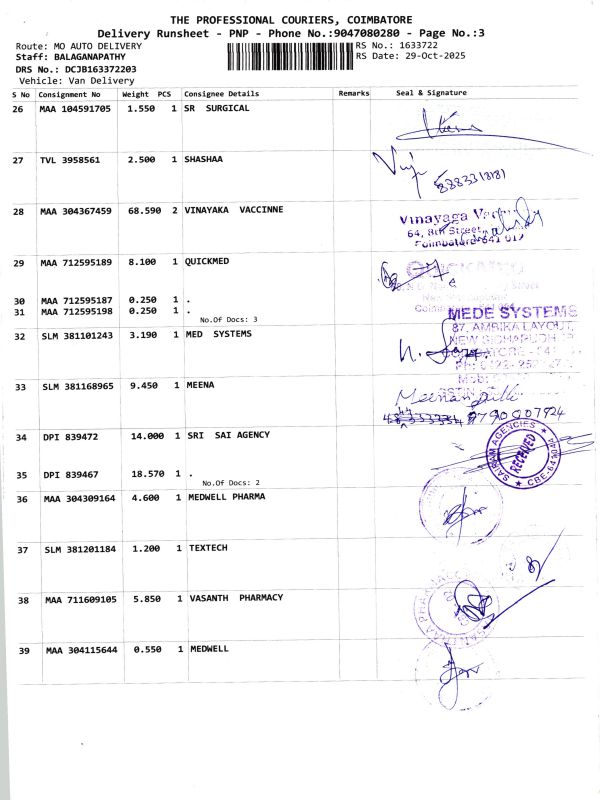 THE PROFESSIONAL COURIERS, COIMBATORE
Delivery Runsheet - PNP - Phone No.:9047080280 - Page No.:3
Route: MO AUTO DELIVERY RS No.: 1633722
Staff: BALAGANAPATHY RS Date: 29-Oct-2025
DRS No.: DCJB163372203
Vehicle: Van Delivery
S No Consignment No Weight PCS Consignee Details Remarks Seal & Signature
26 MAA 104591705 1.550 1 SR SURGICAL
27 TVL 3958561 2.500 1 SHASHAA
8883318181
28 MAA 304367459 68.590 2 VINAYAKA VACCINNE
Vinayaga
64, 8th Street,
Coimbatore-641 012
29 MAA 712595189 8.100 1 QUICKMED
30 MAA 712595187 0.250 1 .
31 MAA 712595198 0.250 1 .
No.Of Docs: 3
MEDE SYSTEMS
87, AMBIKA LAYOUT,
32 SLM 381101243 3.190 1 MED SYSTEMS
33 SLM 381168965 9.450 1 MEENA
9790007924
34 DPI 839472 14.000 1 SRI SAI AGENCY
AGENCIES
RECEIVED
35 DPI 839467 18.570 1 .
No.Of Docs: 2
36 MAA 304309164 4.600 1 MEDWELL PHARMA
37 SLM 381201184 1.200 1 TEXTECH
38 MAA 711609105 5.850 1 VASANTH PHARMACY
39 MAA 304115644 0.550 1 MEDWELL